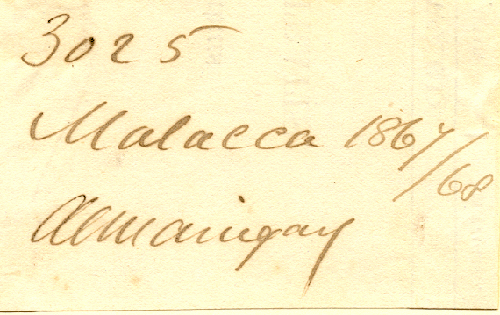 3025
Malacca 1867/68
ACMaingay